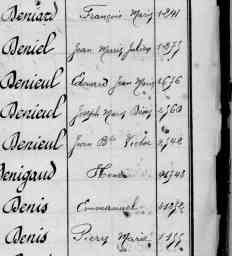 Beniard François Marie 1241
Beniel Jean Marie Julien 1377
Benieul Edouard Jean Marie 2676
Benieul Joseph Marie 2760
Benieul Jean Bte Victor 2742
Benigaud
Benis Emmanuel
Benis Pierre Marie 1177